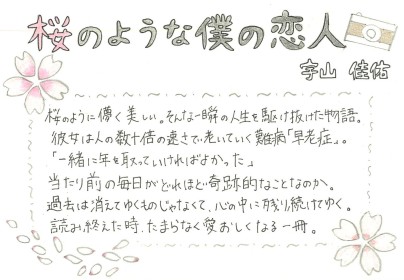 桜のような僕の恋人
宇山 佳佑
桜のように儚く美しい。そんな一瞬の人生を駆け抜けた物語。
彼女は人の数十倍の速さで老いていく難病「早老症」。
「一緒に年を取っていければよかった」
当たり前の毎日がどれほど奇跡的なことなのか。
過去は消えてゆくものじゃなくて、心の中に残り続けてゆく。
読み終えた時、たまらなく愛おしくなる一冊。